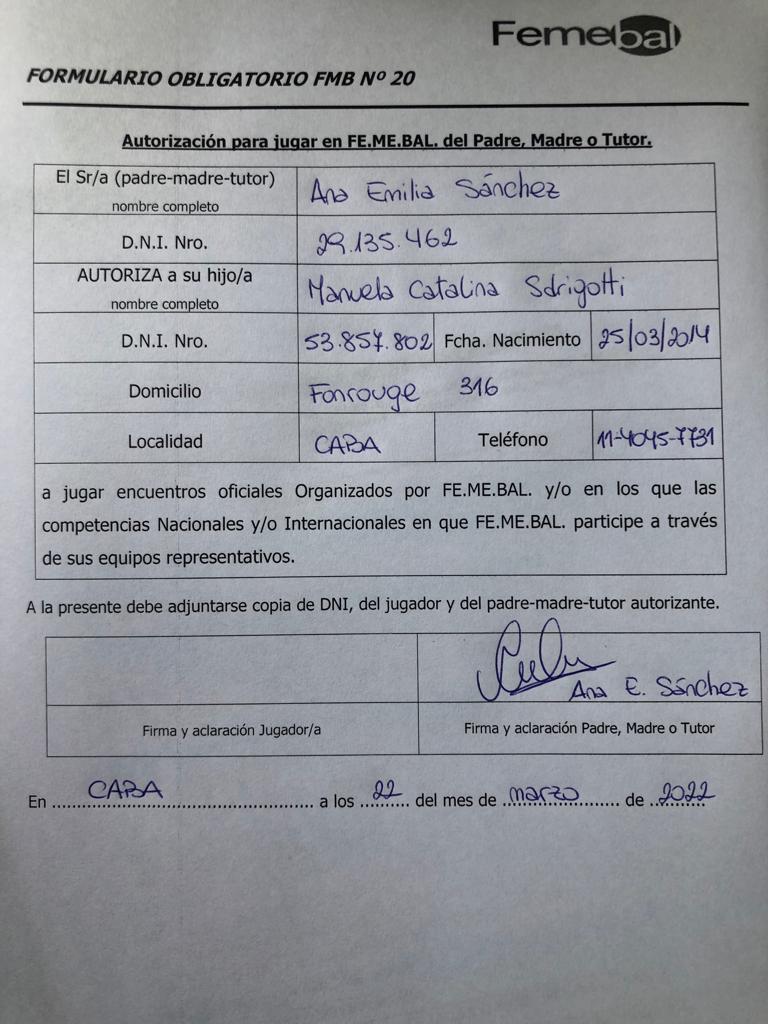 Femebal
FORMULARIO OBLIGATORIO FMB Nº 20
Autorización para jugar en FE.ME.BAL. del Padre, Madre o Tutor.
El Sr/a (padre-madre-tutor)
nombre completo
Ana Emilia Sánchez
D.N.I. Nro.
29.135.462
AUTORIZA a su hijo/a
nombre completo
Manuela Catalina Sdrigotti
D.N.I. Nro.
53.857.802
Fcha. Nacimiento
25/03/2014
Domicilio
Fonrouge 316
Localidad
CABA
Teléfono
11-4045-7731
a jugar encuentros oficiales Organizados por FE.ME.BAL. y/o en los que las
competencias Nacionales y/o Internacionales en que FE.ME.BAL. participe a través
de sus equipos representativos.
A la presente debe adjuntarse copia de DNI, del jugador y del padre-madre-tutor autorizante.
Ana E. Sánchez
Firma y aclaración Jugador/a
Firma y aclaración Padre, Madre o Tutor
En CABA a los 22 del mes de marzo de 2022